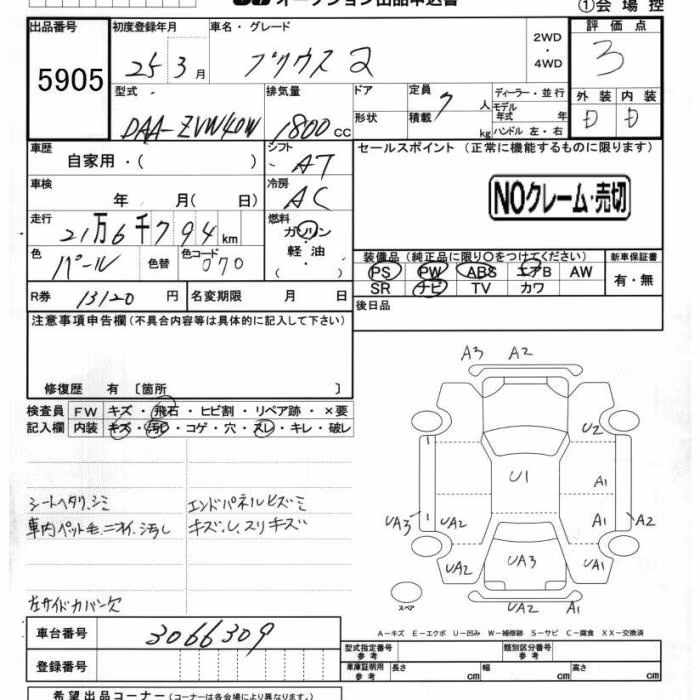 オークション出品申込書
①会場控
出品番号 初度登録年月 車名・グレード 2WD・4WD 評価点
5905 25年3月 プリウス 2 3
型式 排気量 ドア 形状 定員 7人 積載 kg ディーラー・並行 モデル年式 年 ハンドル 左・右 外装 内装
DAA-ZVW40W 1800cc D D
車歴 自家用・( ) シフト AT セールスポイント (正常に機能するものに限ります)
車検 年 月( 日) 冷房 AC NOクレーム・売切
走行 21万6千794km 燃料 ガソリン・軽油・( )
色 パール 色替 色コード 070
装備品(純正品に限り〇をつけてください) 新車保証書
PS PW ABS エアB AW 有・無
SR ナビ TV カワ
R券 13120円 名変期限 月 日 後日品
注意事項申告欄(不具合内容等は具体的に記入して下さい)
修復歴 有 〔箇所 〕
検査員 FW キズ・飛石・ヒビ割・リペア跡・×要
記入欄 内装 キズ・汚レ・コゲ・穴・スレ・キレ・破レ
シートヘタリ、シミ エンドパネルヒズミ
車内ペット毛、ニオイ、汚し キズ、し、スリキズ
左サイドカバー欠
A3 A2
U2
U1 A1
UA3 UA2 A1 A2
UA2 UA3 UA1
UA2 A1
スペア
A−キズ E−エクボ U−凹み W−補修跡 S−サビ C−腐食 XX−交換済
車台番号 3066309
型式指定番号 参考 類別区分番号 参考
登録番号 車庫証明用 参考 長さ cm 幅 cm 高さ cm
希望出品コーナー(コーナーは各会場により異なります。)